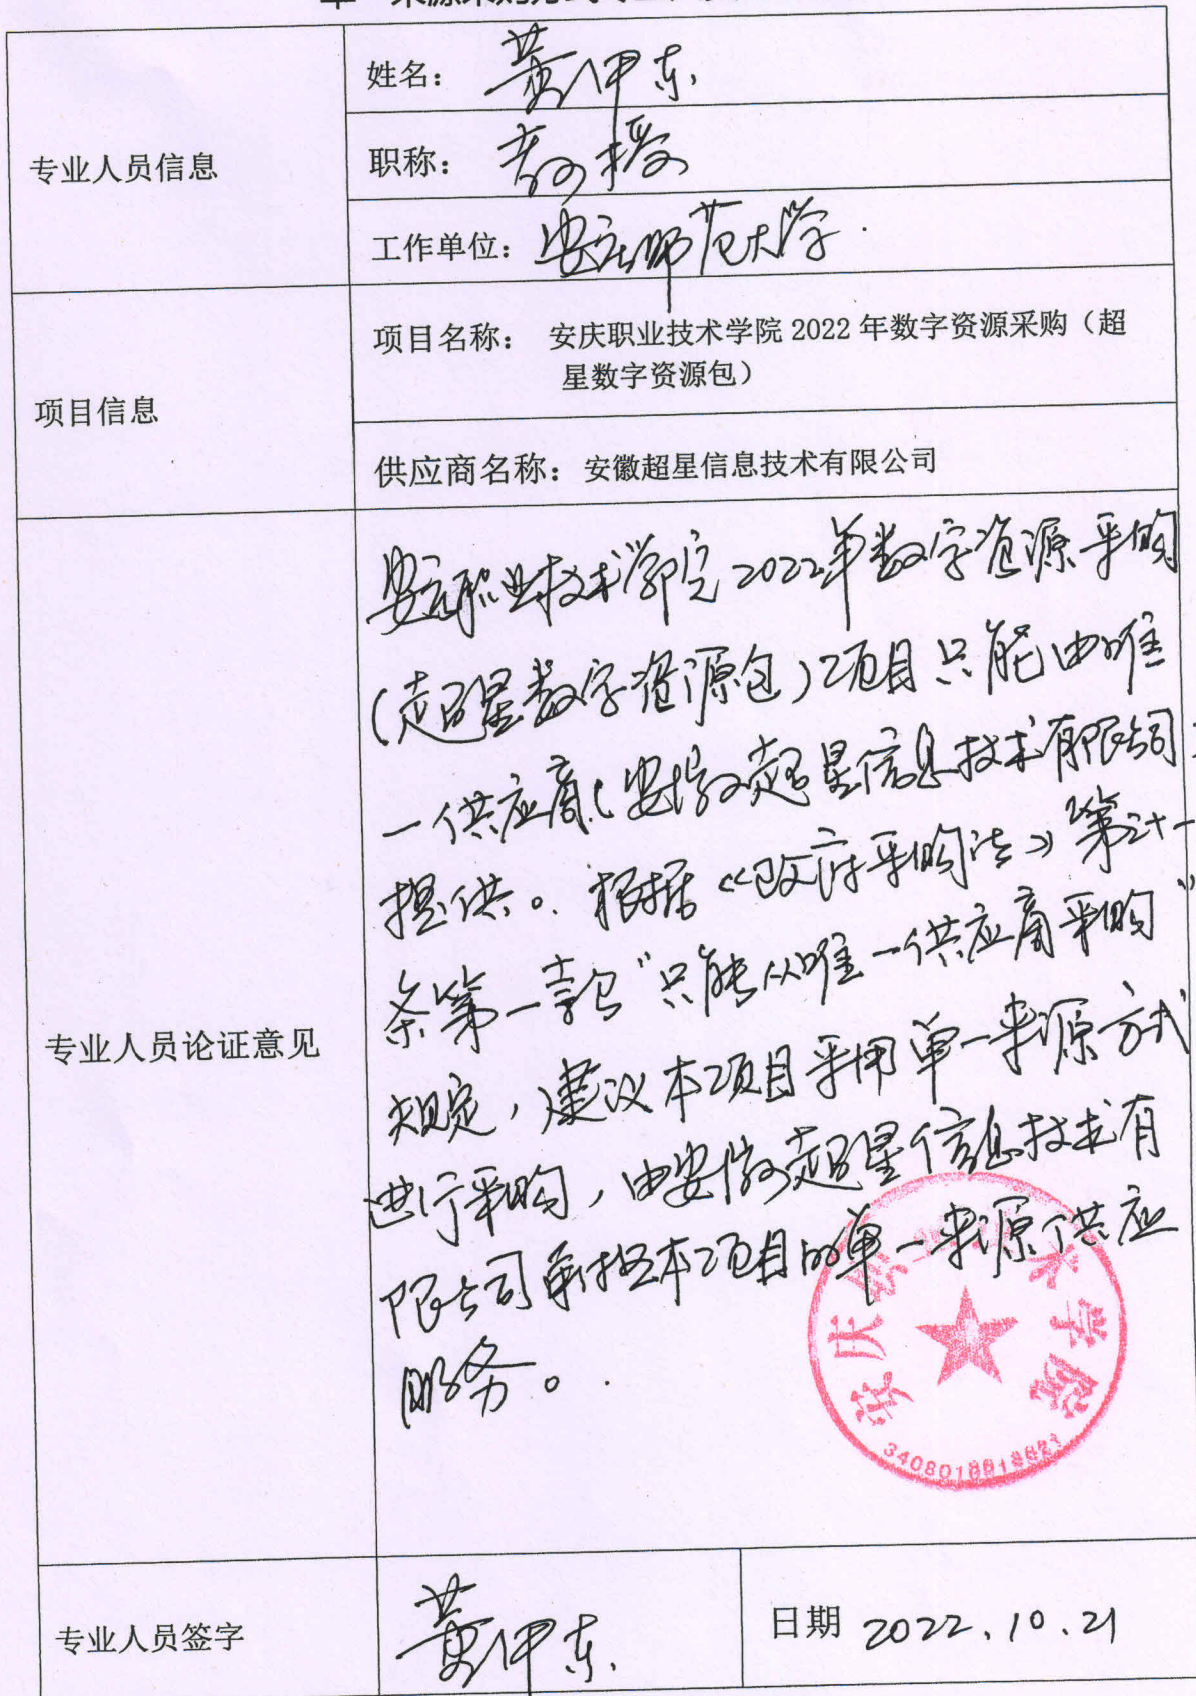 姓名：黄伊东
专业人员信息
职称：教授
工作单位：安庆师范大学
项目信息
项目名称：安庆职业技术学院 2022 年数字资源采购（超
星数字资源包）
供应商名称：安徽超星信息技术有限公司
专业人员论证意见
安庆职业技术学院2022年数字资源采购
（超星数字资源包）项目只能由唯
一供应商（安徽超星信息技术有限公司）
提供。根据《政府采购法》第三十一
条第一款“只能从唯一供应商采购”
规定，建议本项目采用单一来源方式
进行采购，由安徽超星信息技术有
限公司承担本项目的单一来源供应
服务。
安庆职业技术学院
专业人员签字
黄伊东
日期 2022.10.21